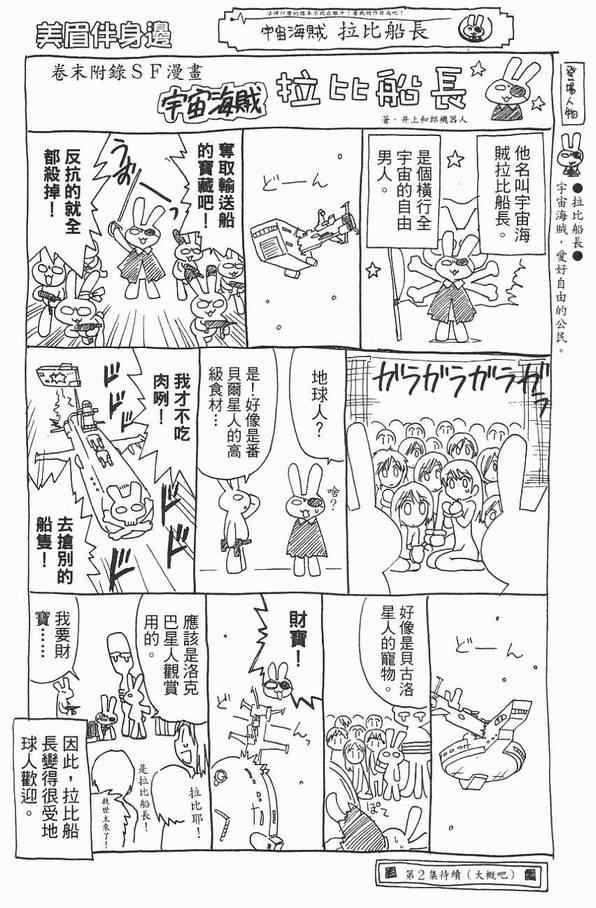 美眉伴身邊
宇宙海賊 拉比船長
卷末附錄SF漫畫
宇宙海賊 拉比船長
著・井上和郎機器人
登場人物
●拉比船長●
宇宙海賊，愛好自由的公民。
他名叫宇宙海
賊拉比船長。
是個橫行全
宇宙的自由
男人。
どーん
奪取輸送船
的寶藏吧！
うおーっ
反抗的就全
都殺掉！
ガラガラガラガラ
地球人？
啥？
是！好像是番
貝爾星人的高
級食材…
我才不吃
肉咧！
ドドド
去搶別的
船隻！
どーん
好像是貝古洛
星人的寵物。
ぽて
財寶！
應該是洛克
巴星人觀賞
用的。
我要財
寶……
拉比耶！
是拉比船長！
救世主來了！
因此，拉比船
長變得很受地
球人歡迎。
第2集待續（大概吧）